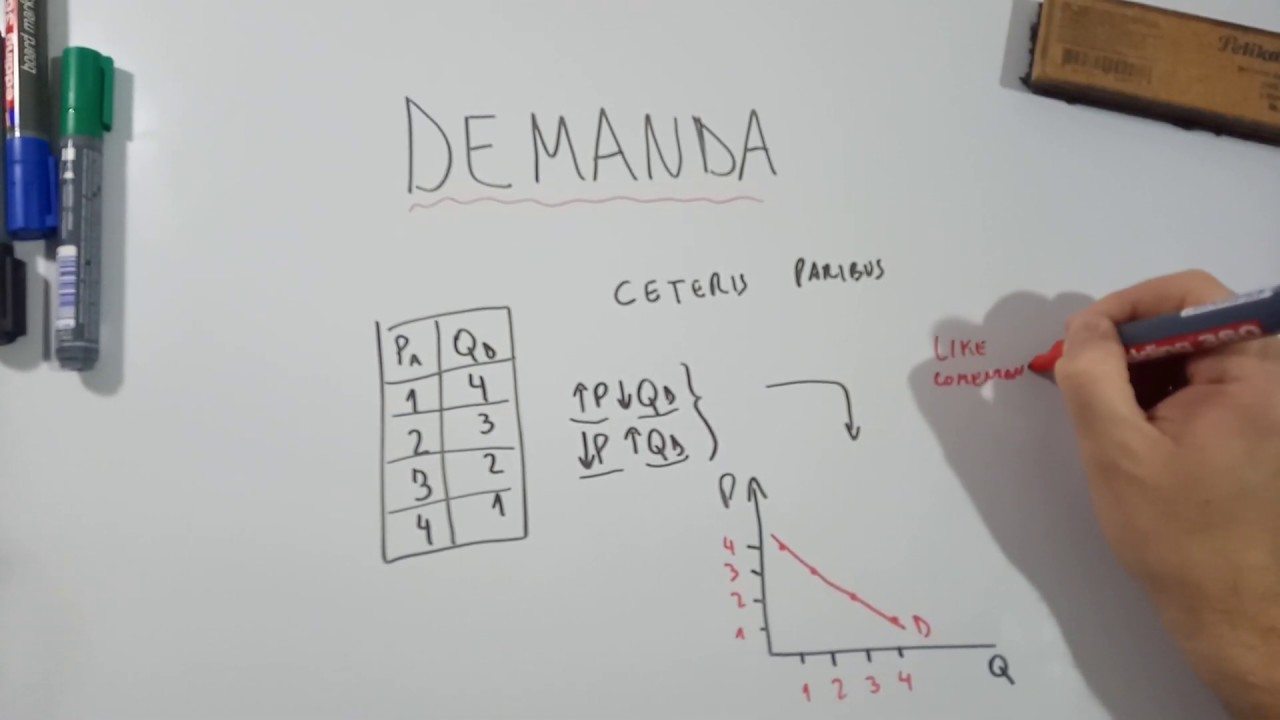 DEMANDA
CETERIS PARIBUS
PA QD
1 4
2 3
3 2
4 1
↑P↓QD
↓P ↑QD
LIKE
COMEMON
P
4
3
2
1
D
Q
1 2 3 4
board mark
Pelikan